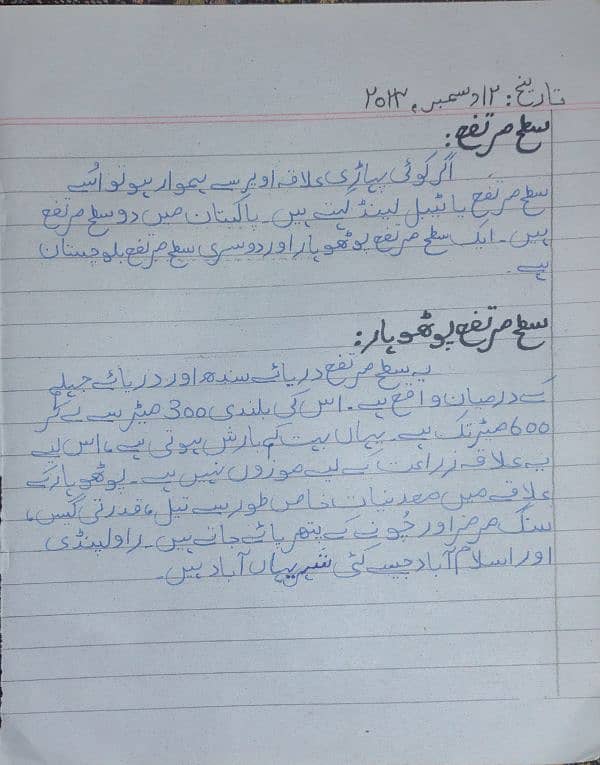 تاریخ: ۱۲ دسمبر، ۲۰۲۳
سطح مرتفع:
اگر کوئی پہاڑی علاقہ اوپر سے ہموار ہو تو اُسے
سطح مرتفع یا ٹیبل لینڈ کہتے ہیں۔ پاکستان میں دو سطح مرتفع
ہیں۔ ایک سطح مرتفع پوٹھوہار اور دوسری سطح مرتفع بلوچستان
ہے۔
سطح مرتفع پوٹھوہار:
یہ سطح مرتفع دریائے سندھ اور دریائے جہلم
کے درمیان واقع ہے۔ اس کی بلندی 300 میٹر سے لے کر
600 میٹر تک ہے۔ یہاں بہت کم بارش ہوتی ہے، اس لیے
یہ علاقہ زراعت کے لیے موزوں نہیں ہے۔ پوٹھوہار کے
علاقے میں معدنیات خاص طور سے تیل، قدرتی گیس،
سنگ مرمر اور چُونے کے پتھر پائے جاتے ہیں۔ راولپنڈی
اور اسلام آباد جیسے کئی شہر یہاں آباد ہیں۔